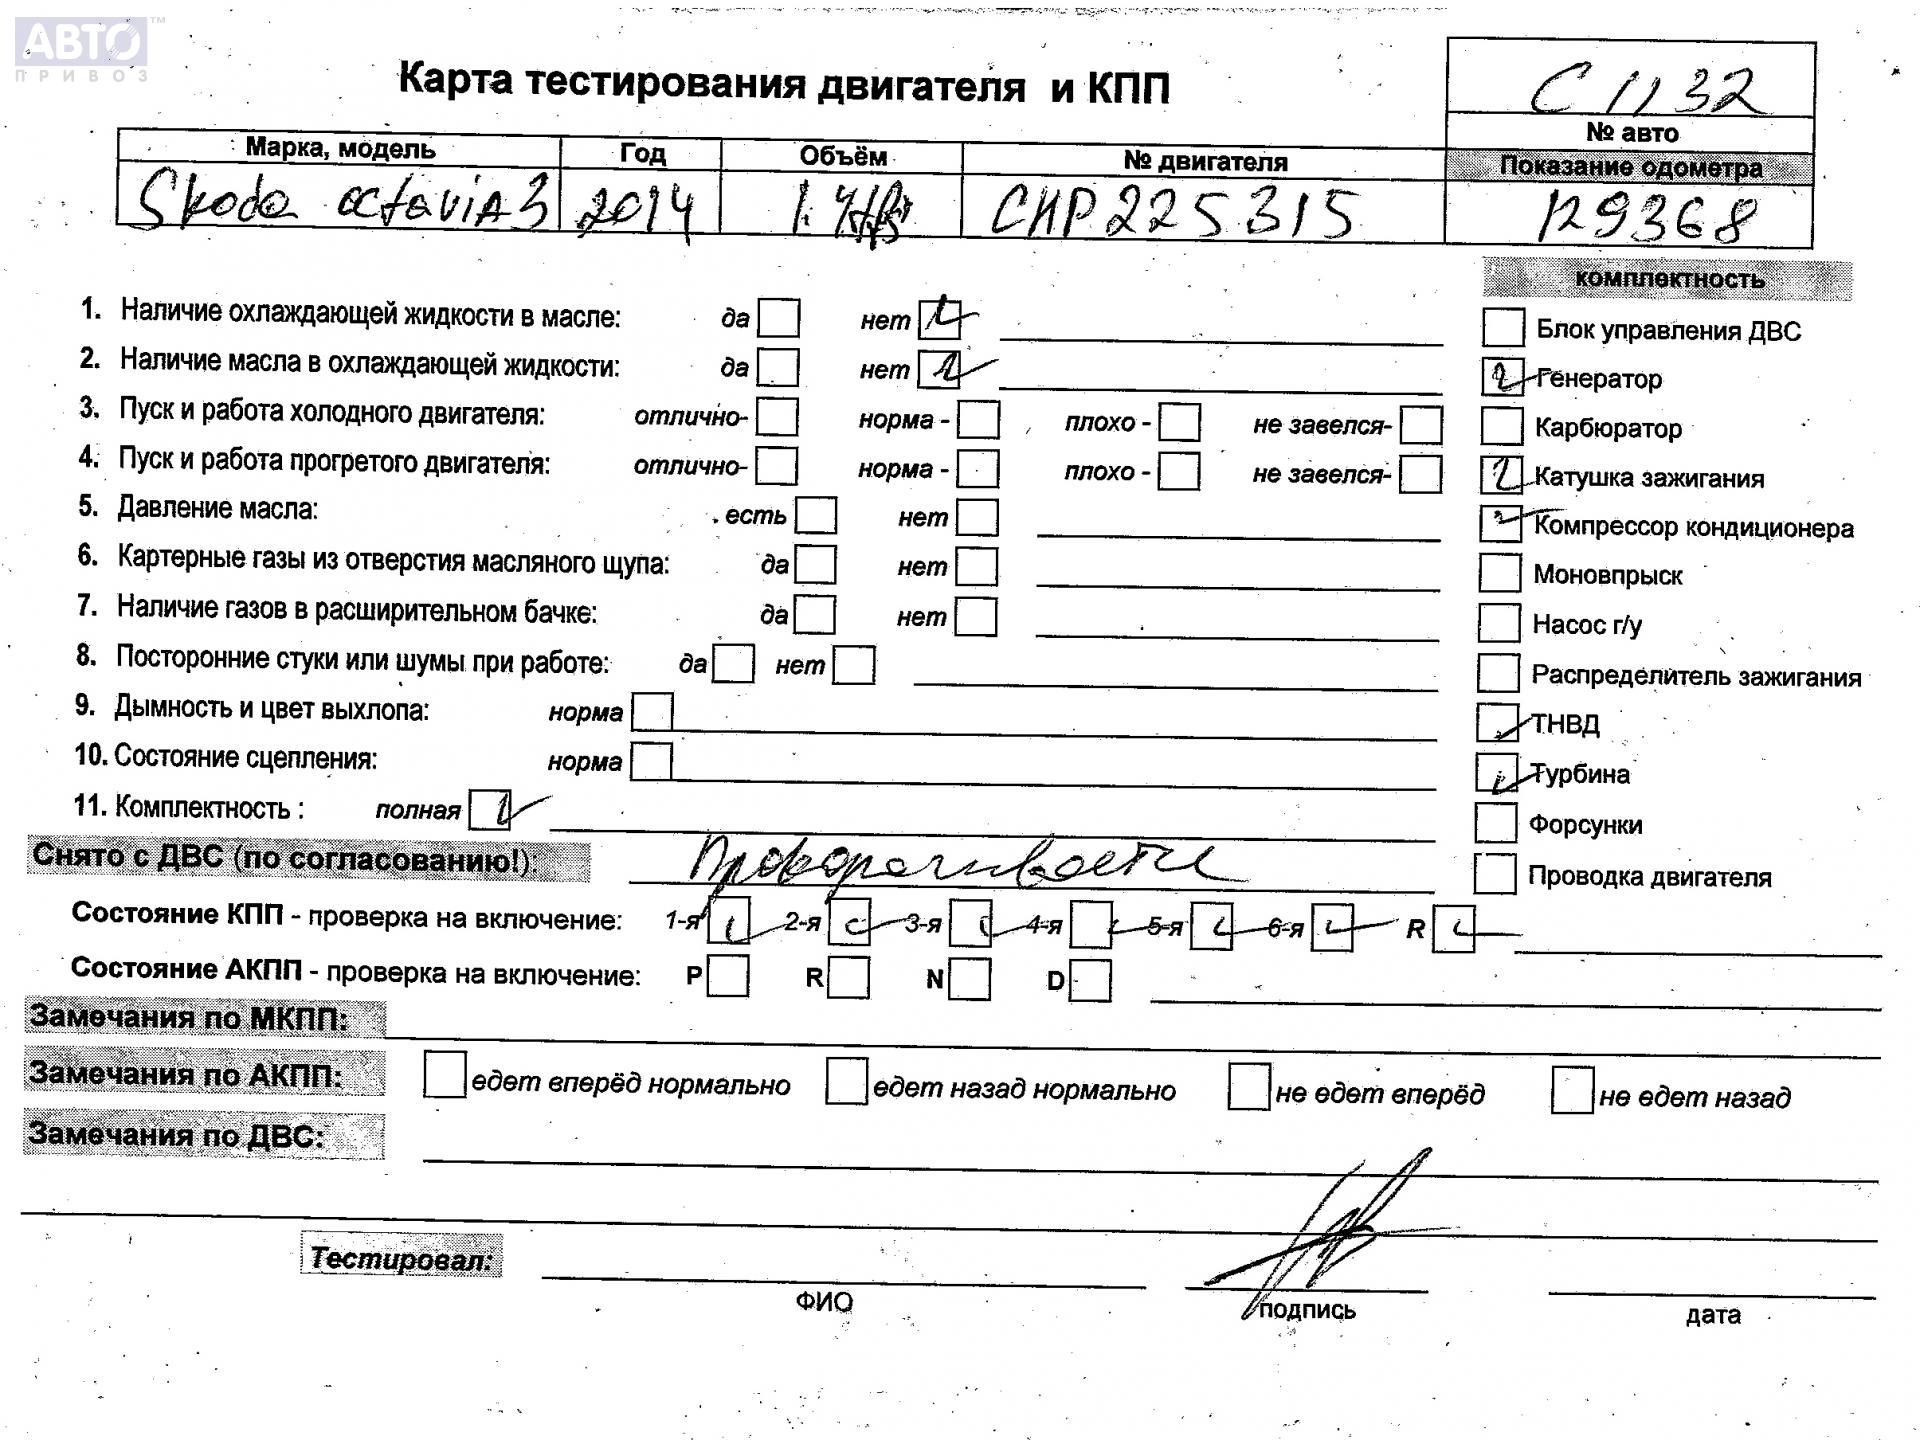 АВТО™
ПРИВОЗ
Карта тестирования двигателя и КПП
С 1132
№ авто
Марка, модель Год Объём № двигателя Показание одометра
Skoda octaviA 3 2014 1.4 225315 129368
комплектность
1. Наличие охлаждающей жидкости в масле: да нет
2. Наличие масла в охлаждающей жидкости: да нет
3. Пуск и работа холодного двигателя: отлично- норма - плохо - не завелся-
4. Пуск и работа прогретого двигателя: отлично- норма - плохо - не завелся-
5. Давление масла: есть нет
6. Картерные газы из отверстия масляного щупа: да нет
7. Наличие газов в расширительном бачке: да нет
8. Посторонние стуки или шумы при работе: да нет
9. Дымность и цвет выхлопа: норма
10. Состояние сцепления: норма
11. Комплектность : полная
Блок управления ДВС
Генератор
Карбюратор
Катушка зажигания
Компрессор кондиционера
Моновпрыск
Насос г/у
Распределитель зажигания
ТНВД
Турбина
Форсунки
Проводка двигателя
Снято с ДВС (по согласованию!):
Состояние КПП - проверка на включение: 1-я 2-я 3-я 4-я 5-я 6-я R
Состояние АКПП - проверка на включение: P R N D
Замечания по МКПП:
Замечания по АКПП: едет вперёд нормально едет назад нормально не едет вперёд не едет назад
Замечания по ДВС:
Тестировал:
ФИО подпись дата